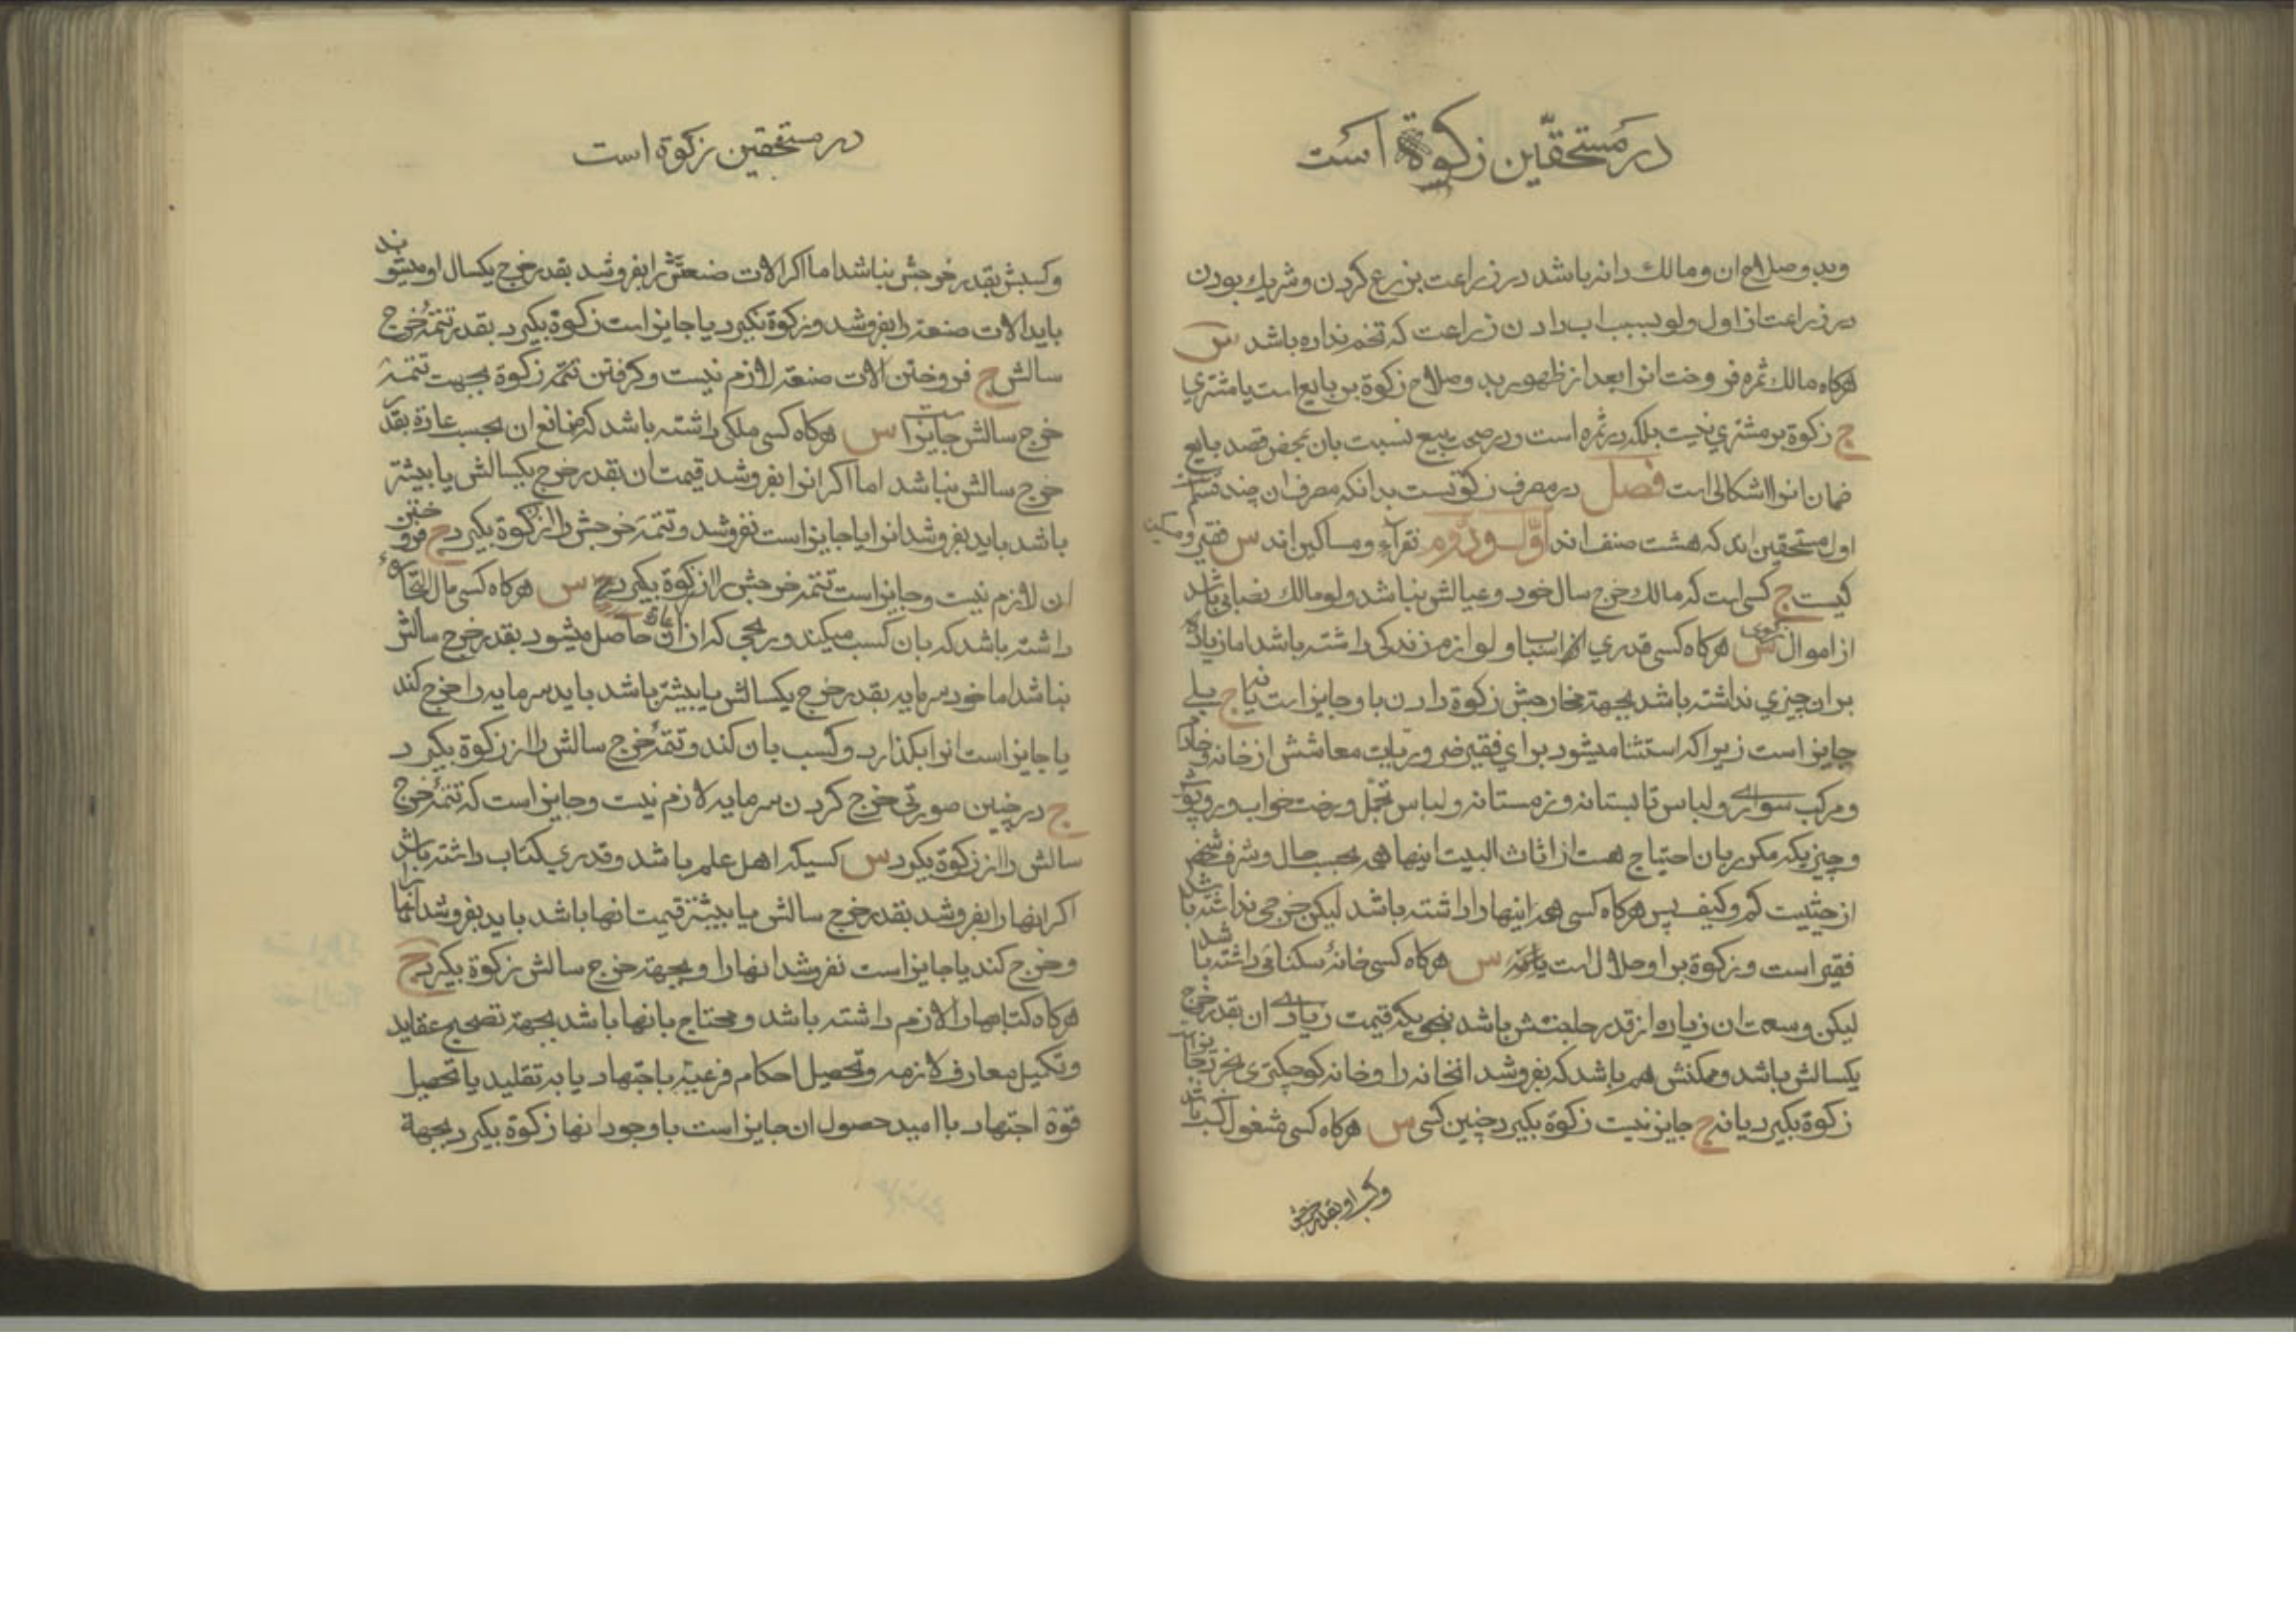 در مستحقّین زکوة است
وبدو صلاح ان و مالك دانه باشد در زراعت بزرع کردن و شریك بودن
در زراعت از اول ولو بسبب اب دادن زراعت که تخم نداره باشد س
هرکاه مالك ثمره فروخت انرا بعد از ظهور بدو صلاح زکوة بر بایع است یا مشتري
ج زکوة بر مشتري نیست بلکه در ثمره است و در صحت بیع نسبت بان بمحض قصد بایع
ضمان انرا اشکالی است فصل در مصرف زکوتست بدانکه مصرف ان چند قسم است
اول مستحقین اند که هشت صنف اند اوّل و دوّم فقرآء و مساکین اند س فقیر و مسکین
کیست ج کسی است که مالك خرج سال خود و عیالش نباشد ولو مالك نصابی باشد
از اموال زکوی س هرکاه کسی قدري از اسباب و لوازم زندکی داشته باشد اما زیاده
بران چیزي نداشته باشد بجهة مخارجش زکوة دادن باو جایز است یا نه ج بلے
جایز است زیراکه استثنا میشود براي فقیر ضروریات معاشش از خانه و خادم
و مرکب سوارے و لباس تابستانه و زمستانه و لباس تجمّل و رخت خواب و روپوش
و چیزیکه مکرر بان احتیاج هست از اثاث البیت اینها همه بحسب حال و شرف شخص
از حیثیت کم و کیف پس هرکاه کسی همه اینها را داشته باشد لیکن خرجی نداشته باشد
فقیر است و زکوة براو حلال است یا نه س هرکاه کسی خانهٔ سکنائی داشته باشد
لیکن وسعت ان زیاده از قدر حاجتش باشد بنحویکه قیمت زیادے ان بقدر خرج
یکسالش باشد و ممکنش هم باشد که بفروشد انخانه را و خانه کوچکتري بخرد میتواند
زکوة بکیرد یا نه ج جایز نیست زکوة بکیرد چنین کسی س هرکاه کسی مشغول کسب باشد
وکسب او بقدر خرجش
در مستحقین زکوة است
وکسبش بقدر خرجش نباشد اما اکر الات صنعتش را بفروشد بقدر خرج یکسال او میشوند
باید الات صنعة را بفروشد و زکوة نکیرد یا جایز است زکوة بکیرد بقدر تتمهٔ خرج
سالش ج فروختن الات صنعة لازم نیست و کرفتن تتمه زکوة بجهت تتمهٔ
خرج سالش جایز است س هرکاه کسی ملکی داشته باشد که منافع ان بحسب عادة بقدر
خرج سالش نباشد اما اکر انرا بفروشد قیمت ان بقدر خرج یکسالش یا بیشتر
باشد باید بفروشد انرا یا جایز است نفروشد و تتمهٔ خرجش را از زکوة بکیرد ج فروختن
ان لازم نیست و جایز است تتمه خرجش را از زکوة بکیرد س هرکاه کسی مال التجارهٔ
داشته باشد که بان کسب میکند و ربحی که از ان حاصل میشود بقدر خرج سالش
نباشد اما خود سرمایه بقدر خرج یکسالش یا بیشتر باشد باید سرمایه را خرج کند
یا جایز است انرا بکذارد و کسب بان کند و تتمهٔ خرج سالش را از زکوة بکیرد
ج در چنین صورتی خرج کردن سرمایه لازم نیست و جایز است که تتمهٔ خرج
سالش را از زکوة بکیرد س کسیکه اهل علم باشد و قدري کتاب داشته باشد
اکر انها را بفروشد بقدر خرج سالش یا بیشتر قیمت انها باشد باید بفروشد انها را
و خرج کند یا جایز است نفروشد انها را و بجهة خرج سالش زکوة بکیرد ج
هرکاه کتابها را لازم داشته باشد و محتاج بانها باشد بجهة تصحیح عقاید
و تکمیل معارف لازمه و تحصیل احکام فرعیّه باجتهاد یا به تقلید یا تحصیل
قوة اجتهاد با امید حصول ان جایز است با وجود انها زکوة بکیرد بجهة